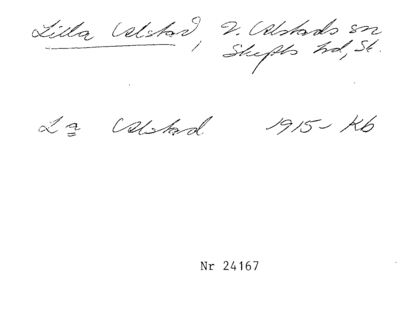 Lilla Ulstad, V. Ulstads sn
Skefts hd, Sk.
La Ulstad. 1915 - Kb
Nr 24167